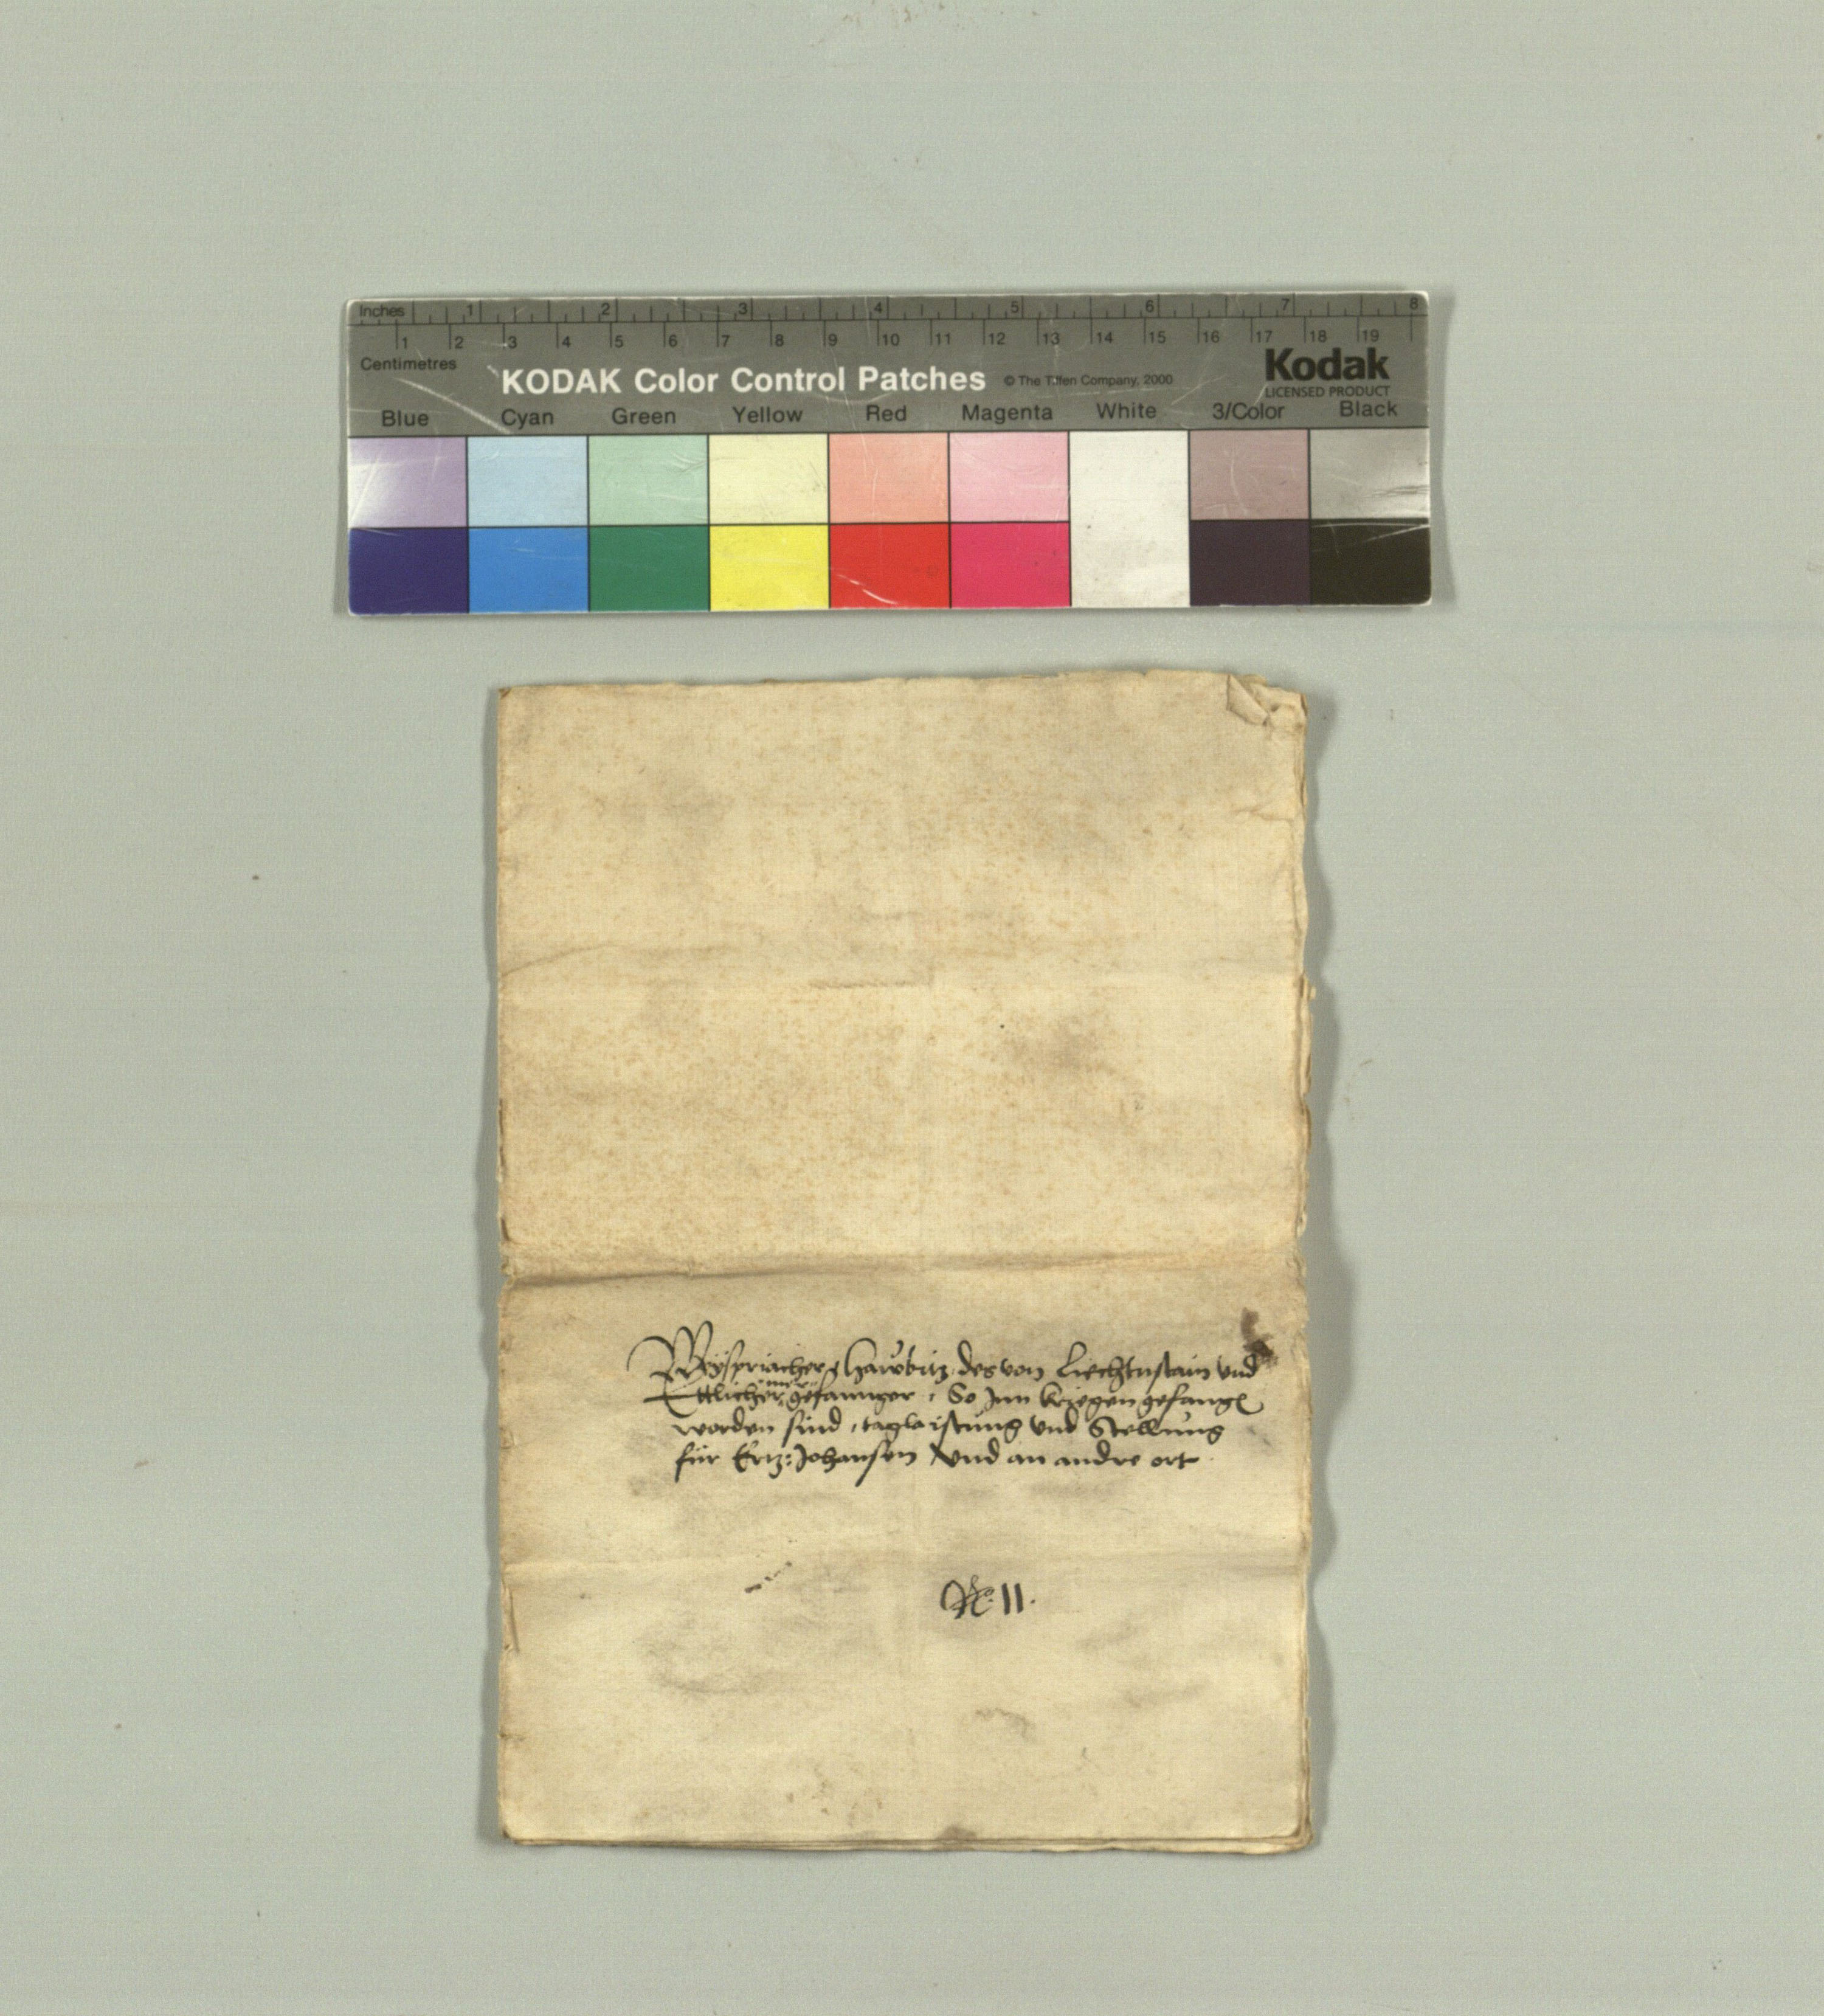 Inches 1 2 3 4 5 6 7 8
1 2 3 4 5 6 7 8 9 10 11 12 13 14 15 16 17 18 19
Centimetres
KODAK Color Control Patches © The Tiffen Company, 2000 Kodak
LICENSED PRODUCT
Blue Cyan Green Yellow Red Magenta White 3/Color Black
Weyspriacher, Hawbitz, des von Liechtnstain vnd
mer
Ettlicher gefannger, So Jnn kriegen gefangen
worden sind, taglaistung vnd Stellung
für Ertz: Johansen vnd an andre ort
No: 11.